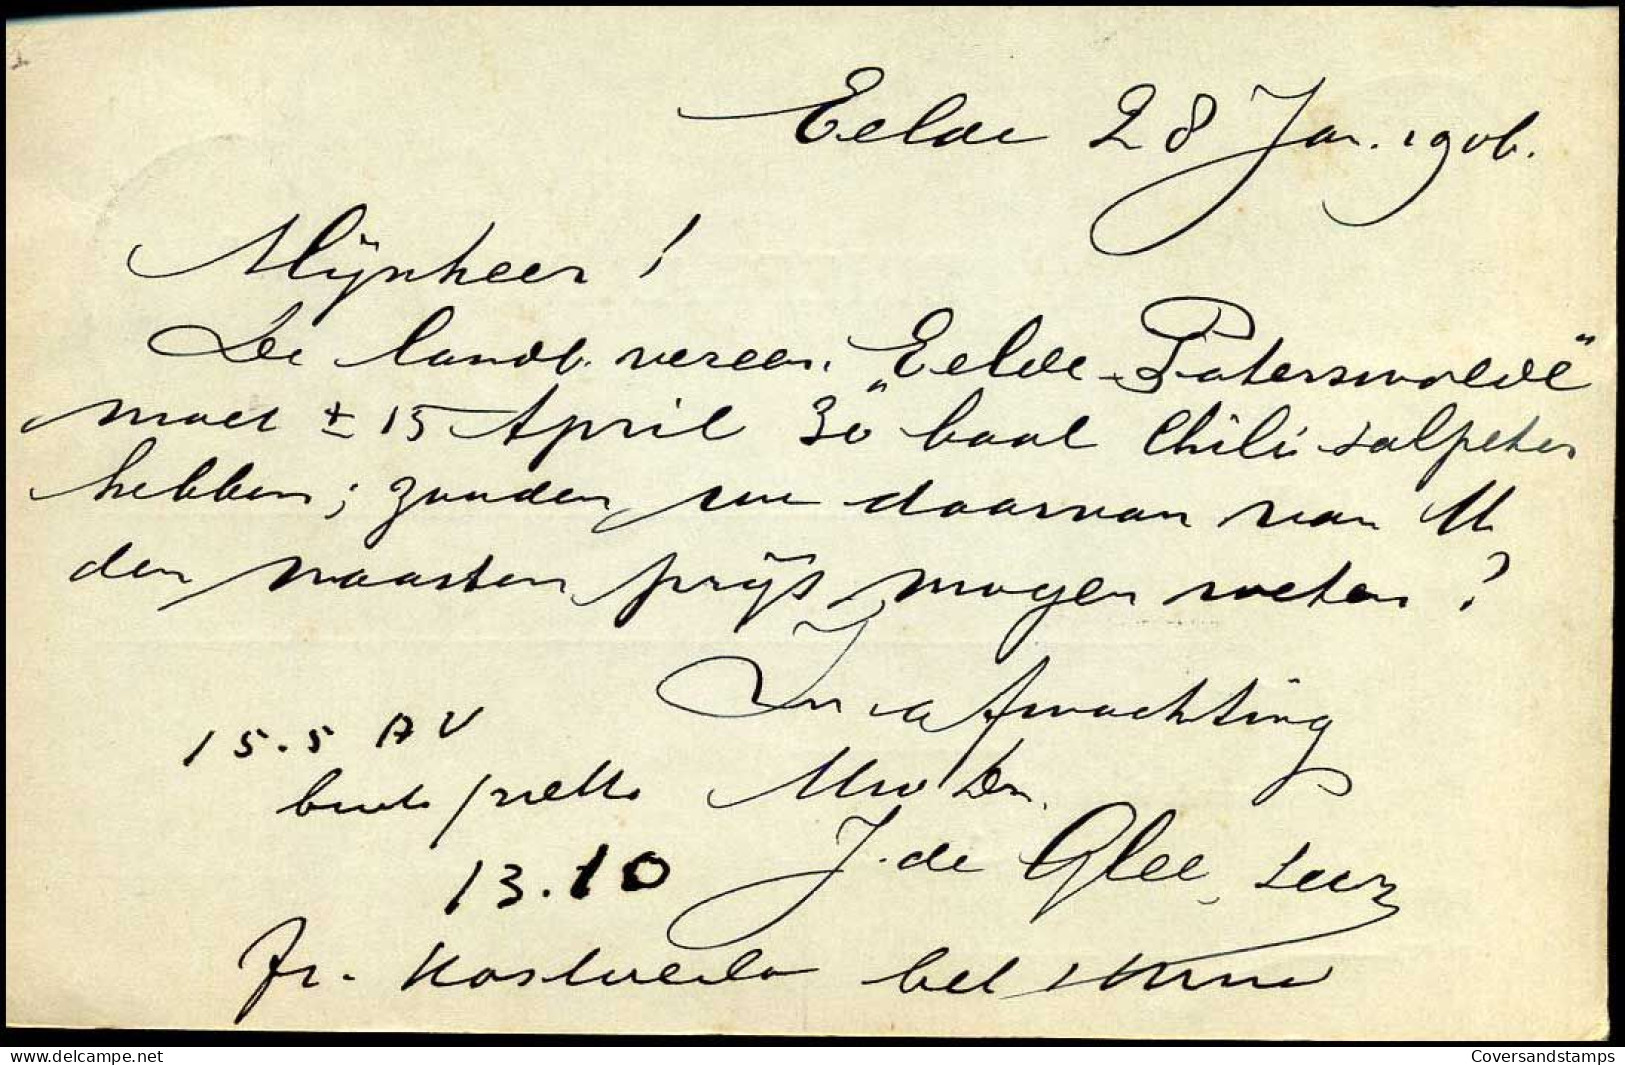 Eelde 28 Jan. 1906.
Mijnheer!
De landb. vereen. „Eelde-Paterswolde"
moet ± 15 April 30 baal Chili salpeter
hebben; zouden we daarvan van U
den naasten prijs mogen weten?
In afwachting
15.5 AV
bruto / netto Uw Dn.
13.10 J. de Glee, Secr
fr.
Coversandstamps